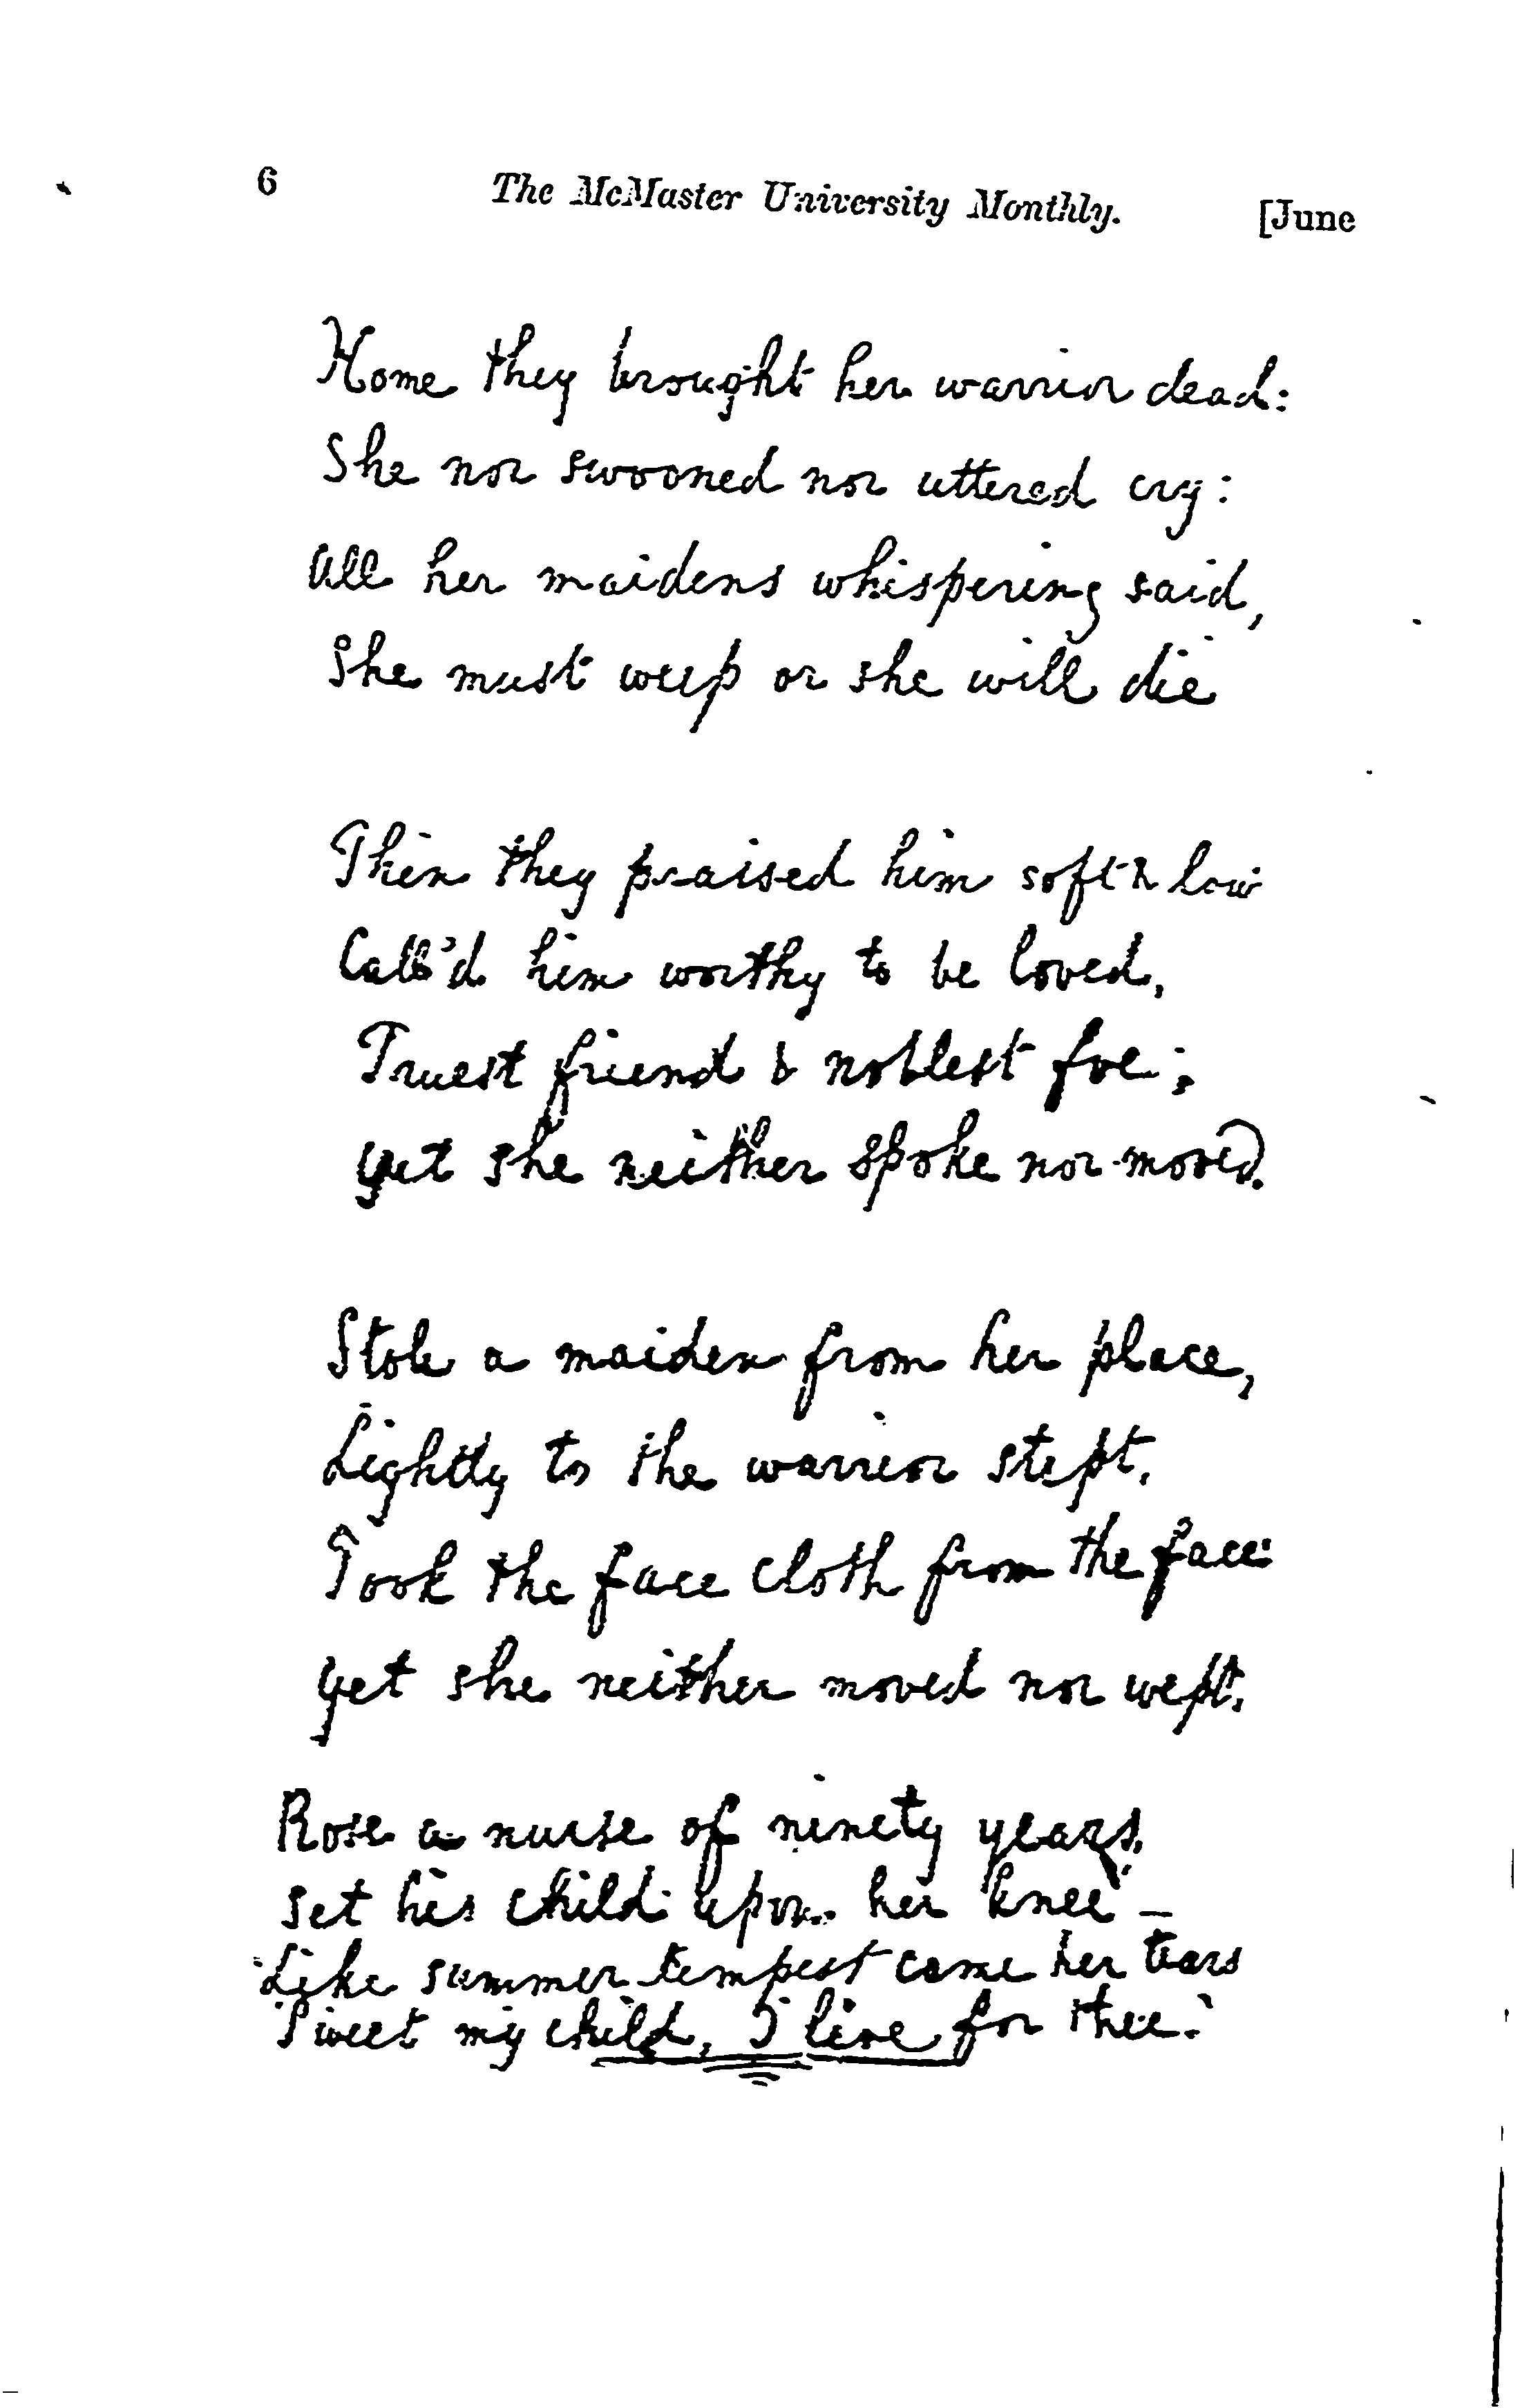 6 The McMaster University Monthly. [June
Home they brought her warrior dead:
She nor swooned nor uttered cry:
All her maidens whispering said,
She must weep or she will die
Then they praised him soft & low
Call'd him worthy to be loved,
Truest friend & noblest foe;
Yet she neither spoke nor moved.
Stole a maiden from her place,
Lightly to the warrior stept,
Took the face cloth from the face:
Yet she neither moved nor wept.
Rose a nurse of ninety years,
Set his child upon her knee –
Like summer tempest came her tears
'Sweet my child, I live for thee.'